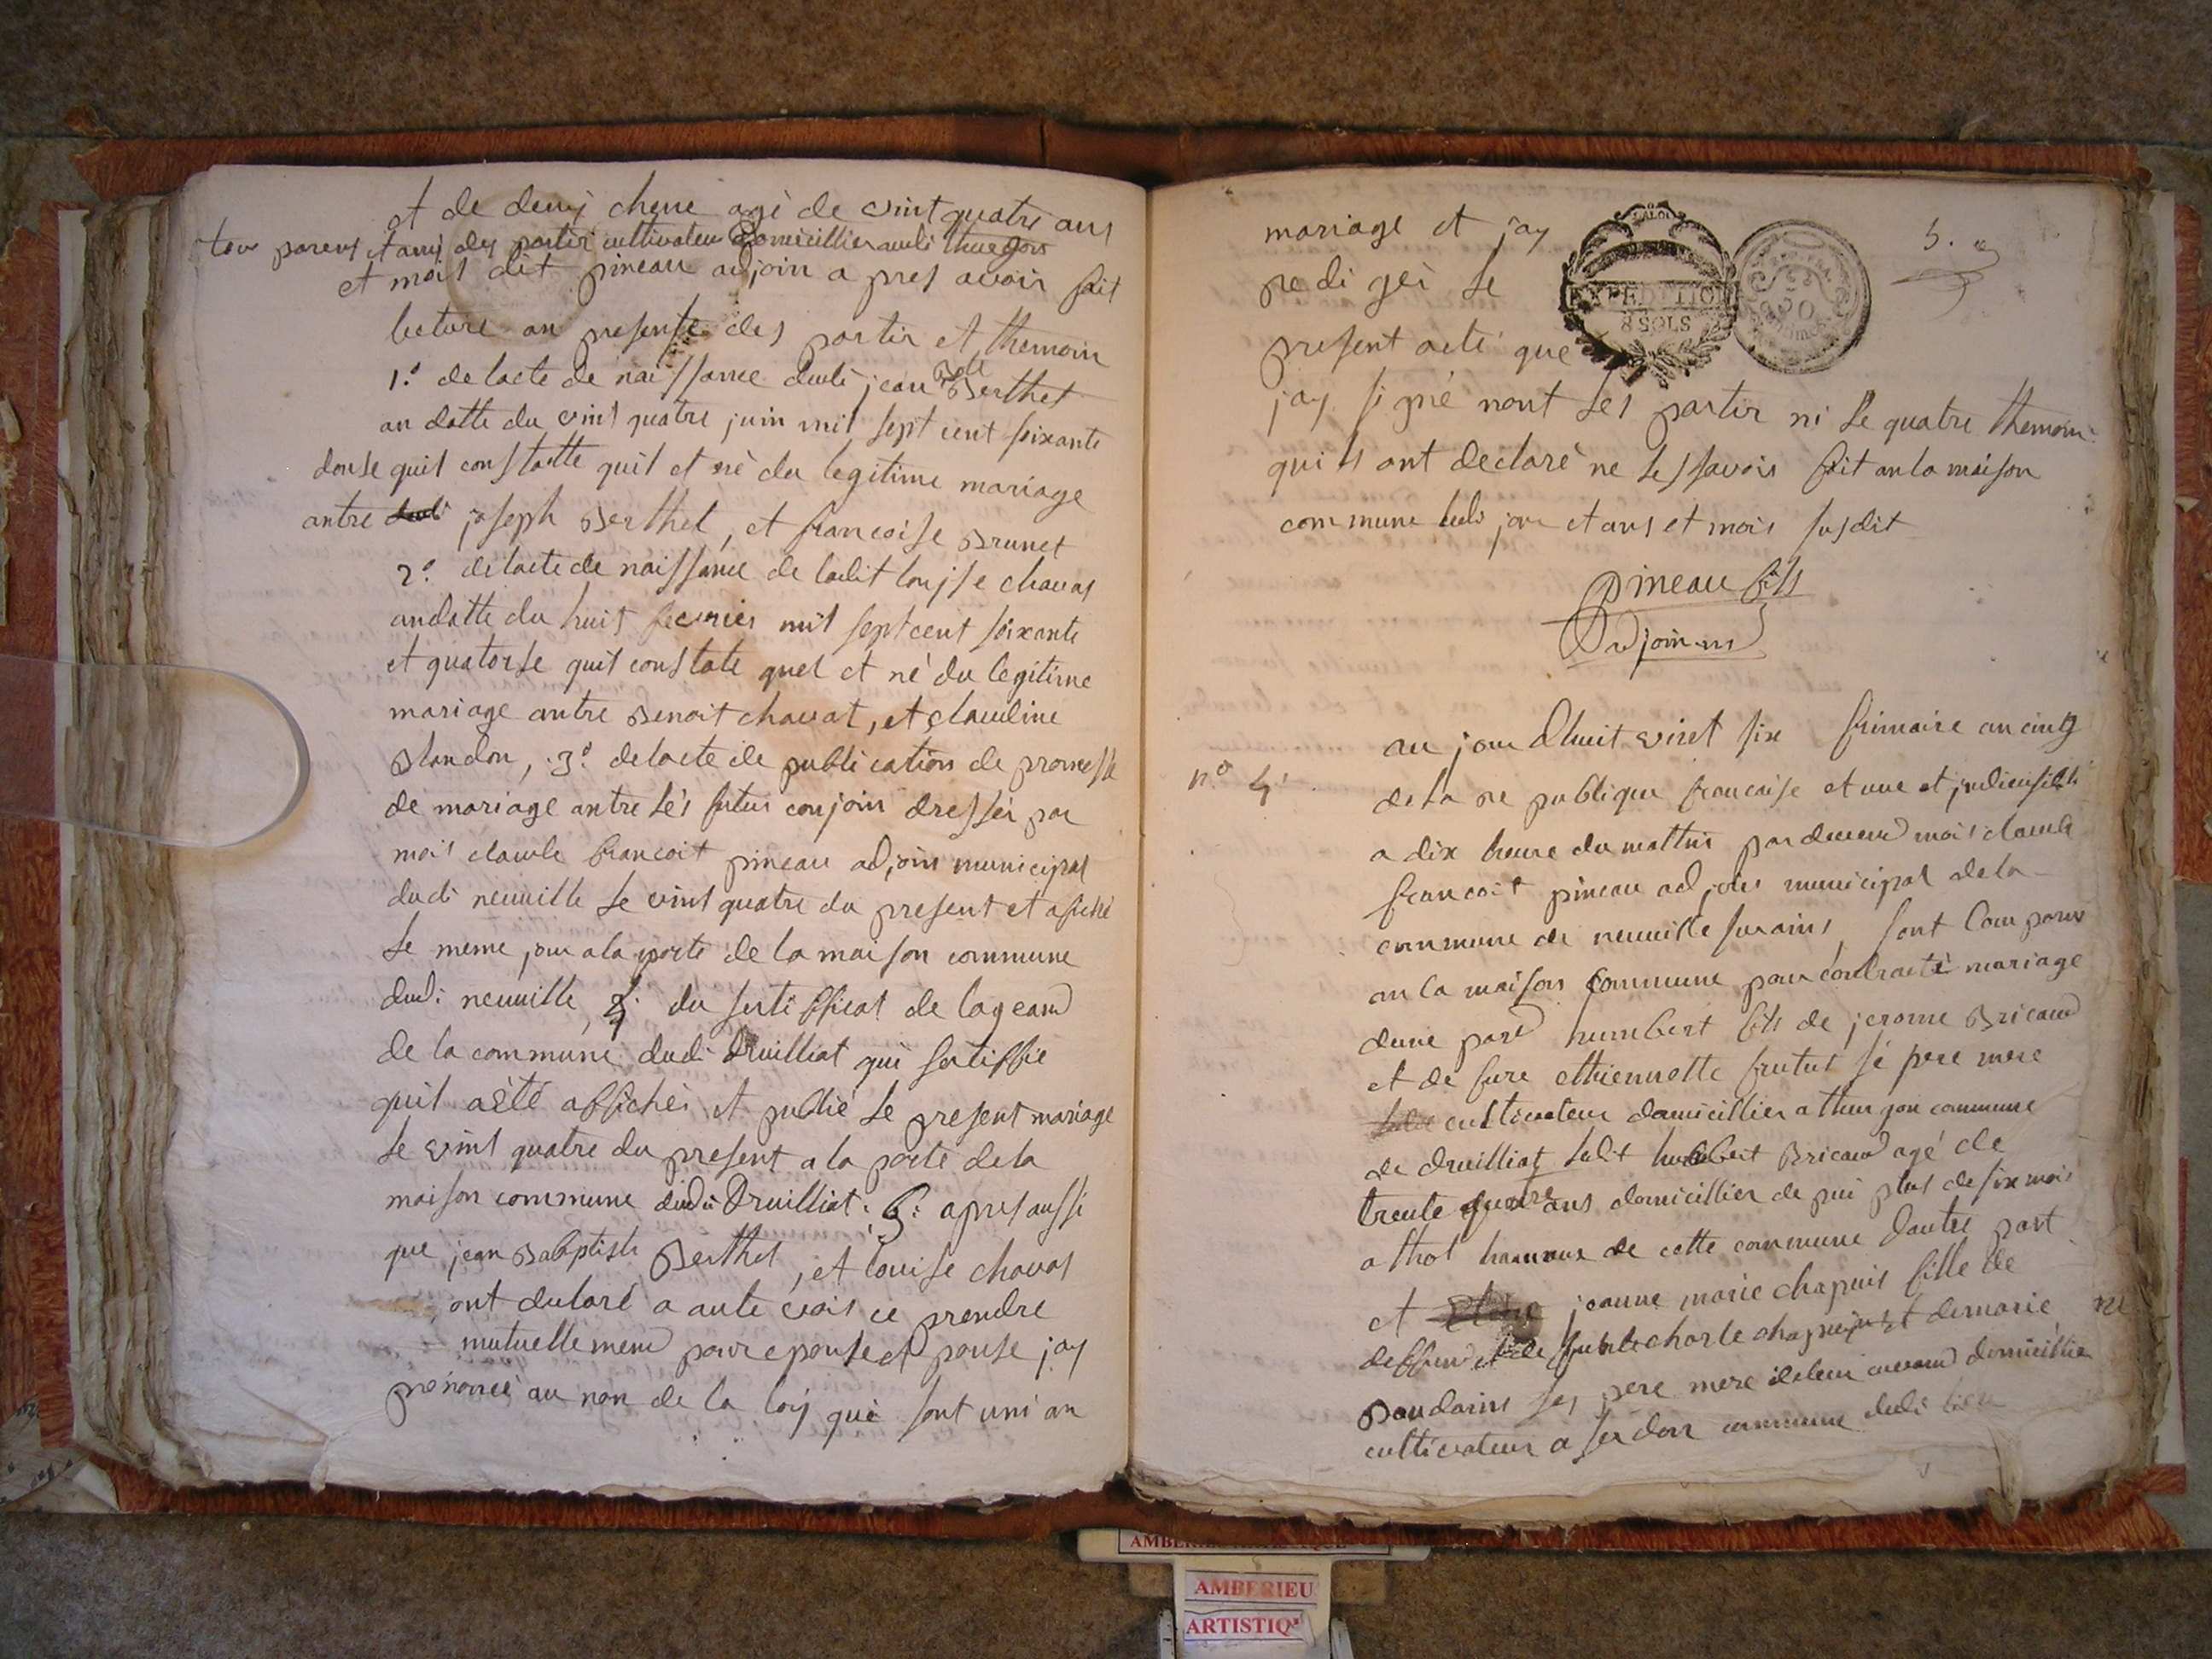 et de denij chene agè de vint quatre ans
tous parens et ami des partir cultivateur Domicillier audi thurgon
et mois dit pineau adjoin a pres avoir fait
lecture an presense des partir et themoin
1.° de lacte de naissance dudi jean Bte Berthet
an datte du vint quatre juin mil sept cent soixante
douse quil constatte quil et né du legitime mariage
antre joseph Berthet, et francoise Brunet
2.° de lacte de naissance de ladit louise chavat
an datte du huit fevrier mil sept cent soixante
et quatorse quil constate quel et né du legitime
mariage antre Benoit chavat, et claudine
Blandon, .3.° de lacte de publication de promesse
de mariage antre lés futur conjoin dressér par
mois claude francoit pineau adjoin municipal
dudi neuville le vint quatre du present et afiché
le meme jour a la porte de la maison commune
dudi neuville, 4: du sertifficat de lageand
de la commune dudi Druilliat qui sertiffie
quil aèté affichér et publié le present mariage
le vint quatre du present a la porte de la
maison commune dudit Druilliat: 5: apres aussi
que jean Babptiste Berthet, et louise chavat
ont duclaré a aute vois ce prendre
mutuellemend pour epouse et pouse jay
prenoncé au non de la loij qui sont uni an
mariage et jay
redigér le
present acte que
5.
EXPEDITION
8 SOLS
jay signé nont les partir ni le quatre themoin
quils ont declaré ne les savoir fait an la maison
commune ledi jour et ans et mois susdit
pineau fils
adjoin
au jour dhuit vint six frimaire an cinq
n.° 4.
de la republique francaise et une et jndiensible
a dix heure du mattin par devend mois claude
francoit pineau adjoin municipal de la
commune de neuville sur ains, sont Comparus
an la maison commune pour contracté mariage
dune pard humbert fils de jerome Bricaud
et de fure ethiennette frutut sé pere mere
cultivateur domicillier a thurgon commune
de druilliat ledit humbert Bricaud agé de
trente quatre ans domicillier de pui plus de six mois
a thol hameau de cette commune dautre part
et jeanne marie chapuis fille de
deffund charle chapuis et de marie
Baudarins ses pere mere de leur vivand domicillier
cultivateur a serdon commune dudi lieu
AMBERIEU
ARTISTIQ